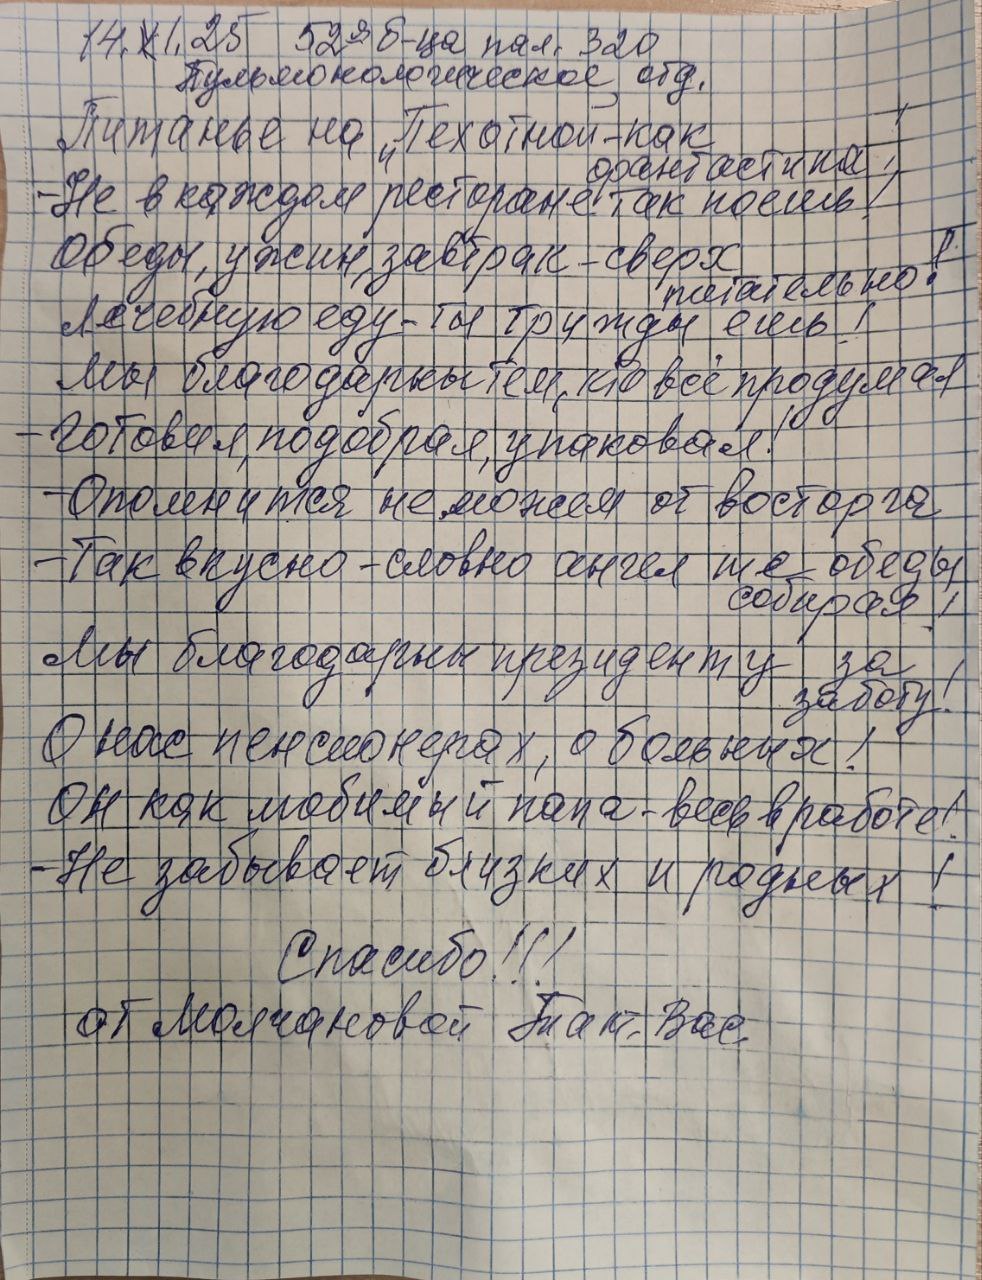 14.XI.25 52я б-ца пал. 320
Пульмонологическое отд.
Питанье на "Пехотной - как
фантастика!
- Не в каждом ресторане так поешь!
Обеды, ужин, завтрак - сверх
питательно!
Лечебную еду - ты трижды ешь!
Мы благодарны тем, кто всё продумал
- Готовил, подобрал, упаковал!
- Опомнится не можем от восторга
- Так вкусно - словно ангел те обеды
собирал!
Мы благодарны президенту за
заботу!
О нас пенсионерах, о больных!
Он как любимый папа - весь в работе!
- Не забывает близких и родных!
Спасибо!!!
от Молчановой Тат. Вас.